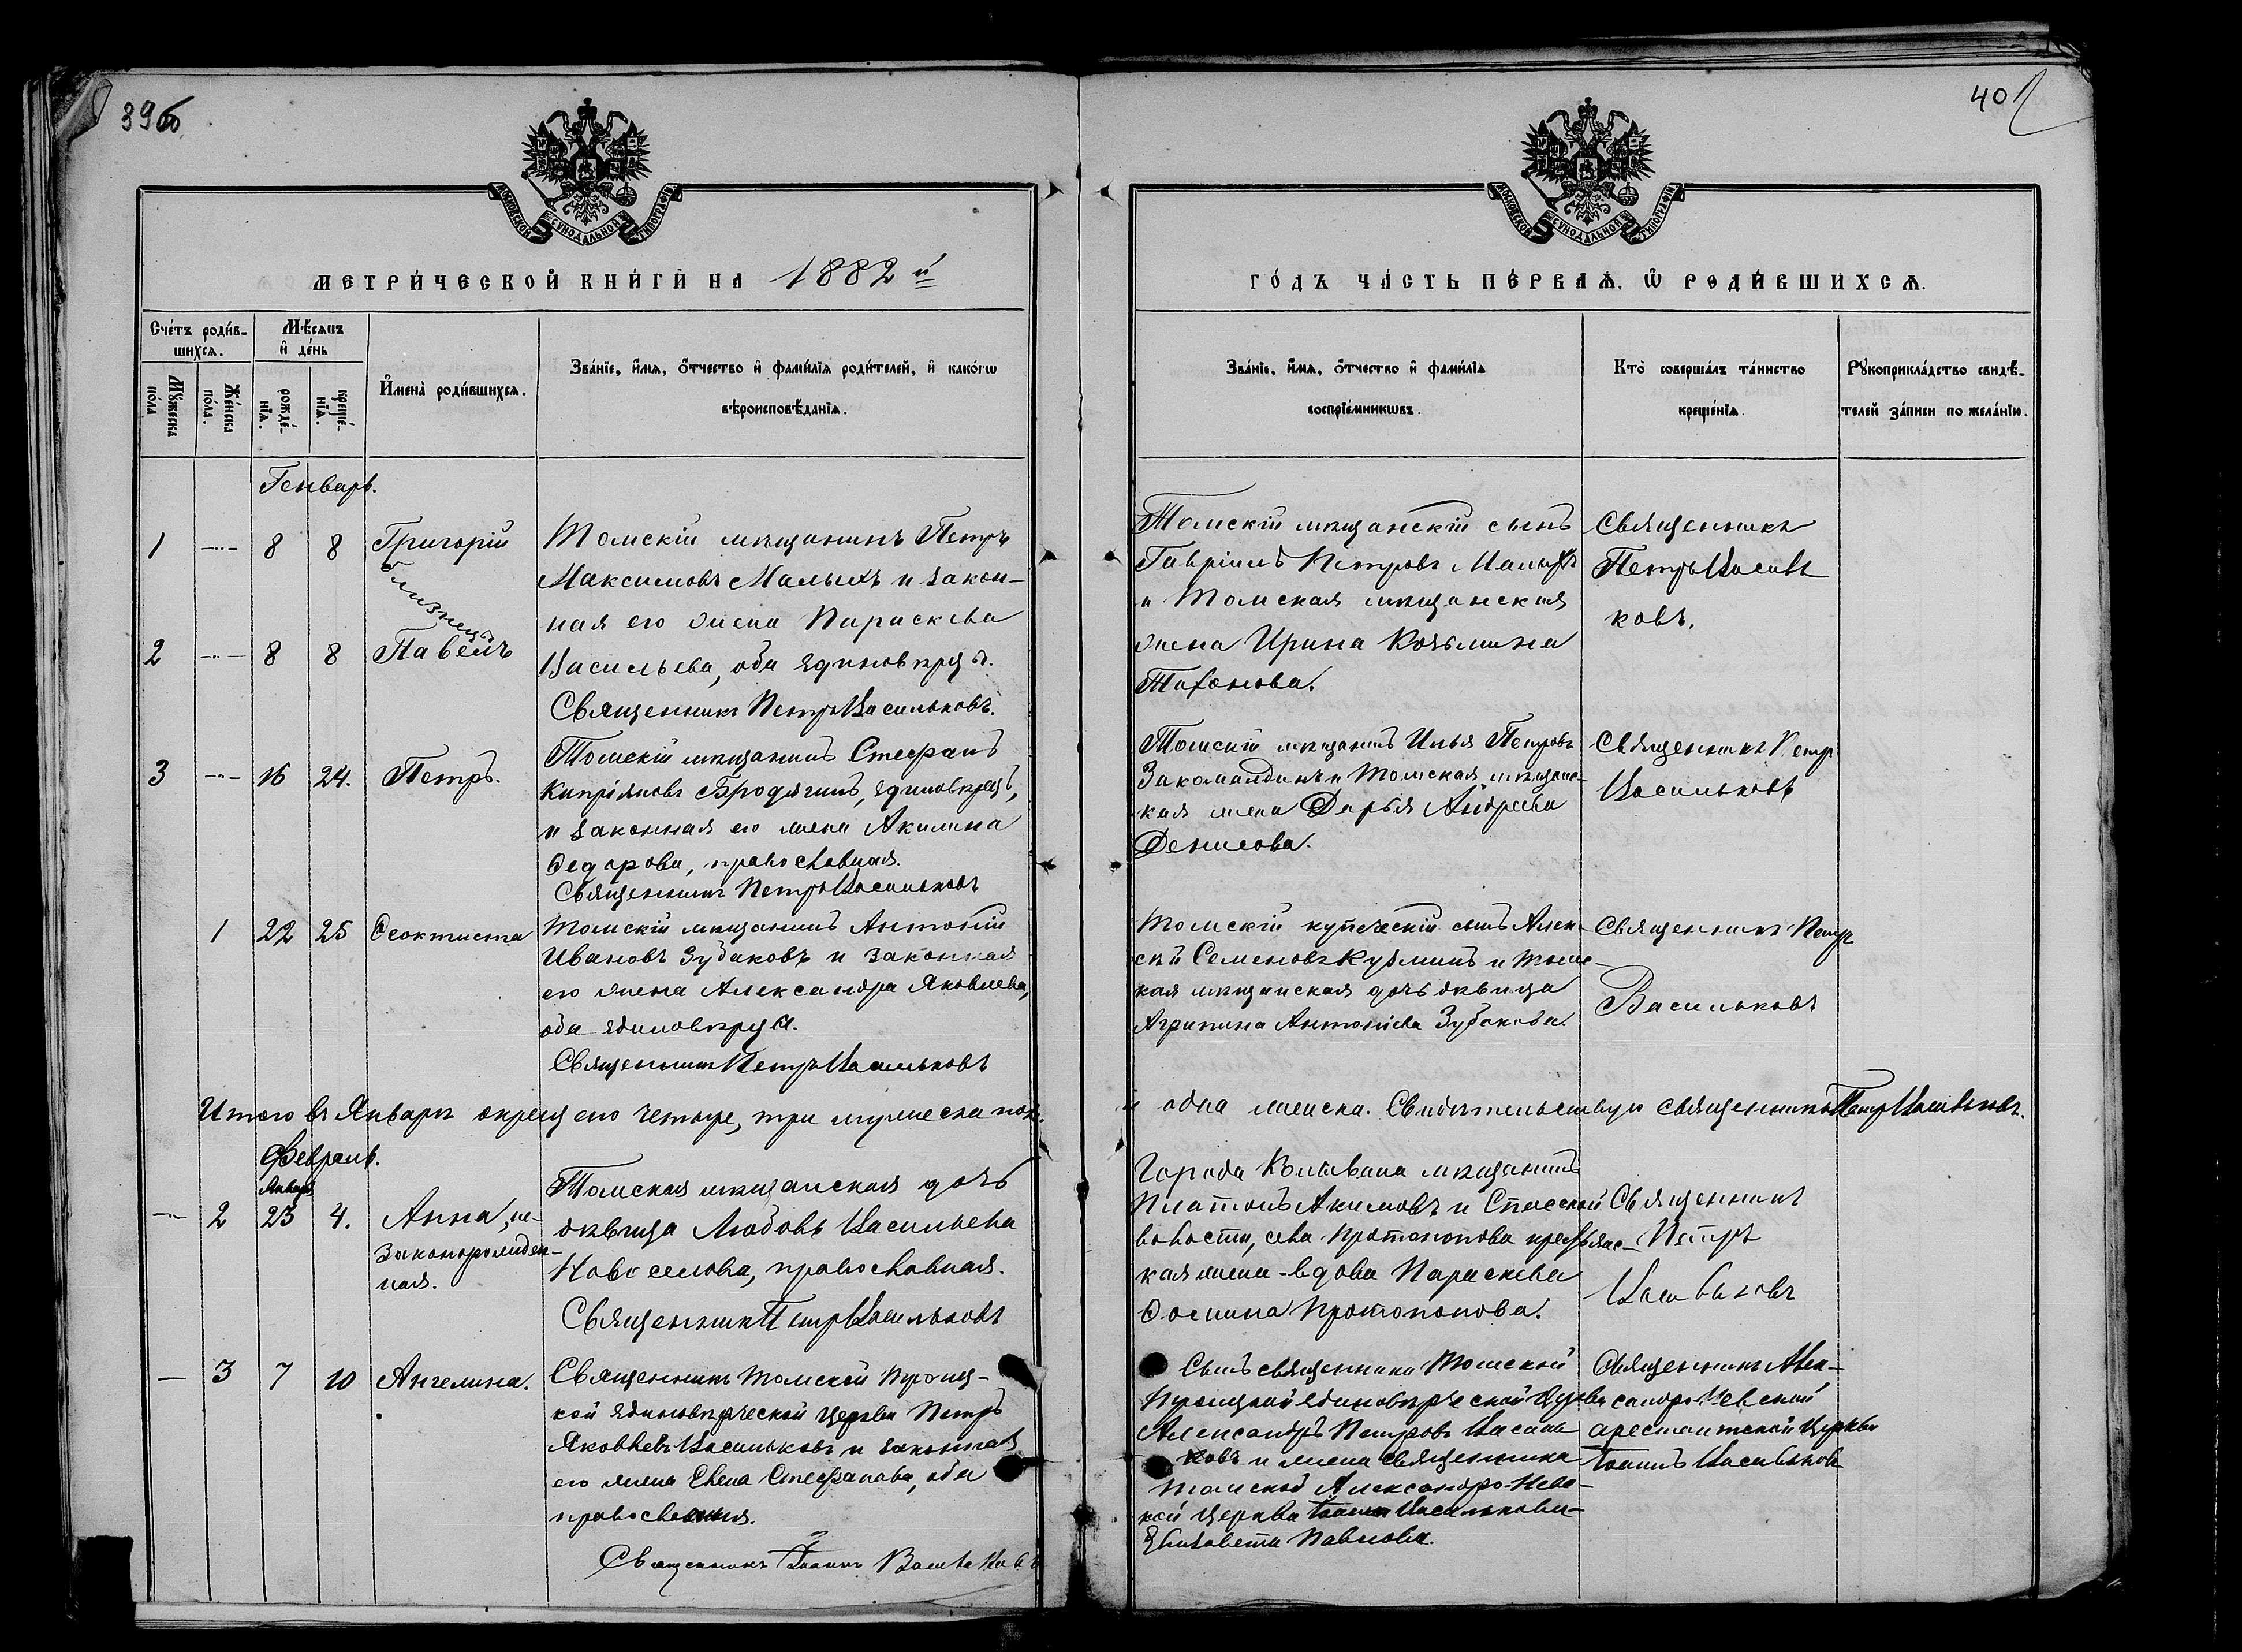 39об
40
МОСКОВСКОЙ СѴНОДАЛЬНОЙ ТИПОГРАФІИ
МОСКОВСКОЙ СѴНОДАЛЬНОЙ ТИПОГРАФІИ
МЕТРИ́ЧЕСКОЙ КНИ́ГИ НА 1882й
ГО́ДЪ ЧА́СТЬ ПЕ́РВАѦ, Ѽ РОДИ́ВШИХСѦ.
Сче́тъ роди́в-
шихсѧ.
Мѣ́сѧцъ
и҆ де́нь
Мꙋ́жеска
по́ла
Же́нска
по́ла.
рожде́-
нїѧ.
креще́-
нїѧ.
И҆мена̀ роди́вшихсѧ.
Зва́нїе, и҆́мѧ, ѻ҆́тчество и҆ фами́лїѧ роди́телей, и҆ како́гѡ
вѣроисповѣ́данїѧ.
Зва́нїе, и҆́мѧ, ѻ҆́тчество и҆ фами́лїѧ
воспрїе́мникѡвъ.
Кто̀ соверша́лъ та́инство
креще́нїѧ.
Рꙋкоприкла́дство свидѣ́-
телей за́писи по жела́нїю.
Генварь.
1 — 8 8 Григорій
близнецы
2 — 8 8 Павелъ
Томскій мѣщанинъ Петръ
Максимовъ Малыхъ и закон-
ная его жена Параскева
Васильева, оба единовѣрцы.
Священникъ Петръ Васильковъ.
Томскій мѣщанскій сынъ
Гавріилъ Петровъ Малыхъ
и Томская мѣщанская
жена Ирина Козьмина
Священникъ
Петръ Василь
ковъ.
3 — 16 24. Петръ.
Томскій мѣщанинъ Стефанъ
Кипріяновъ Бродягинъ, единовѣрецъ,
и законная его жена Акилина
Ѳедорова, православная.
Священникъ Петръ Васильковъ
Томскій мѣщанинъ Илья Петровъ
Закомалдинъ и Томская мѣщанс-
кая жена Дарья Андреева
Денисова.
Священникъ Петр
Васильковъ
1 22 25 Ѳеоктиста
Томскій мѣщанинъ Антоній
Ивановъ Зубаковъ и законная
его жена Александра Яковлева,
оба единовѣрцы.
Священникъ Петръ Васильковъ
Томскій купеческій сынъ Алек-
сѣй Семеновъ и томс-
кая мѣщанская дочь дѣвица
Агрипина Антоніева Зубакова.
Священникъ Петръ
Васильковъ
Итого въ Январѣ окрещено четыре, три мужеска пол.
и одна женска. Свидѣтельствую священникъ Петръ Васильковъ.
Февраль.
Январ
— 2 23 4. Анна, не-
законорожден-
ная.
Томская мѣщанская дочь
дѣвица Любовь Васильева
Новоселова, православная.
Священникъ Петръ Васильковъ
Города Колывана мѣщанинъ
Платонъ Акимовъ и Спасской
волости, села Протопопова крестьянс-
кая жена-вдова Параскева
Ѳомина Протопопова.
Священникъ
Петръ
Васильковъ
— 3 7 10 Ангелина.
Священникъ Томской Троиц-
кой единовѣрческой церкви Петръ
Яковлевъ Васильковъ и законная
его жена Елена Стефанова, оба
православныя.
Священникъ Іоаннъ Васильковъ
Сынъ священника Томской
Троицкой единовѣрческой церкви
Александръ Петровъ Василь
ковъ и жена священника
Томской Александро-Невс-
кой церкви Іоанна Василькова-
Елизавета Павлова.
Священникъ Алек-
сандро-Невской
арестантской церкви
Іоаннъ Васильковъ